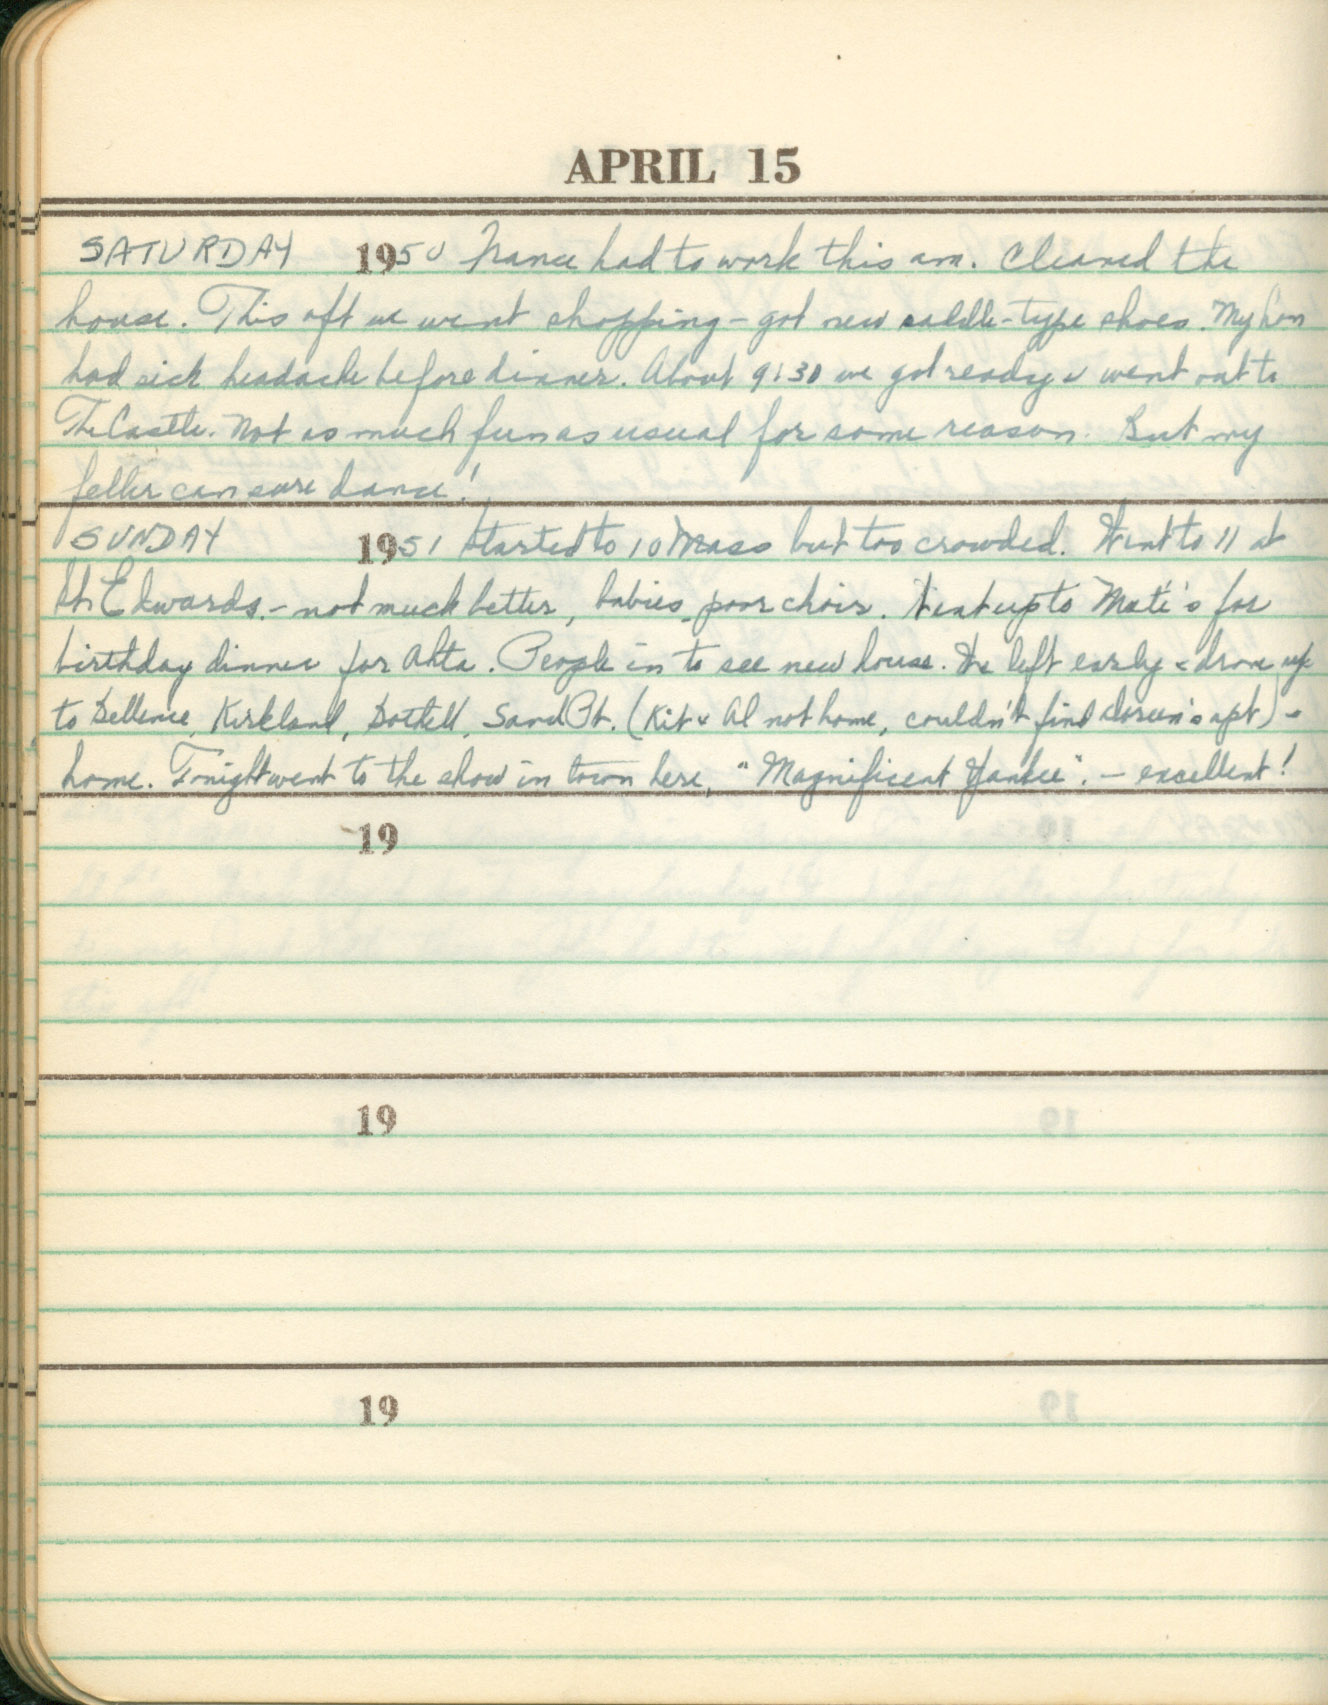 APRIL 15
SATURDAY 1950 France had to work this am. Cleaned the
house. This aft we went shopping - got new saddle-type shoes. My hon
had sick headache before dinner. About 9:30 we got ready & went out to
The Castle. Not as much fun as usual for some reason. But my
feller can sure dance!
SUNDAY 1951 Started to 10 Mass but too crowded. Went to 11 at
St. Edwards. - not much better, babies, poor choir. Went up to Mati's for
birthday dinner for Ahta. People in to see new house. We left early & drove up
to Bellevue, Kirkland, Bothell, Sand Pt. (Kit & Al not home, couldn't find Doreen's apt) &
home. Tonight went to the show in town here, "Magnificent Yankee". - excellent!
19
19
19